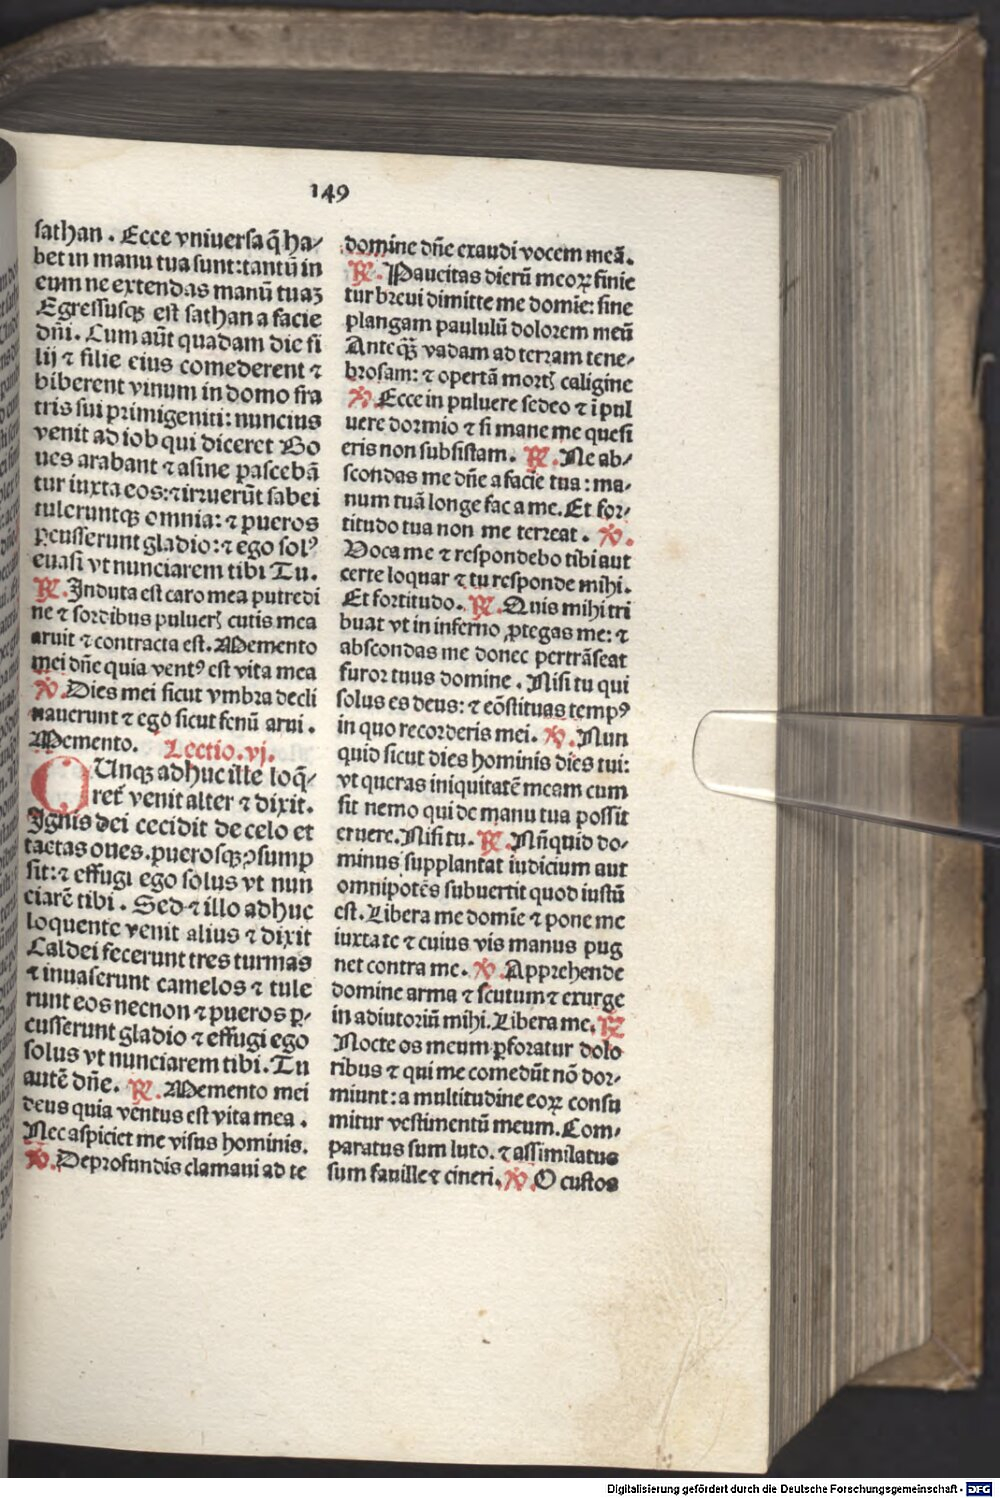 149
sathan . Ecce vniuersa q̄ ha⸗
bet in manu tua sunt: tantū in
eum ne extendas manū tuaꝫ
Egressusqꝫ est sathan a facie
dn̄i. Cum aūt quadam die fi
lij ⁊ filie eius comederent ⁊
biberent vinum in domo fra
tris sui primigeniti: nuncius
venit ad iob qui diceret Bo
ues arabant ⁊ asine pascebā
tur iuxta eos: ⁊ irruerūt sabei
tuleruntqꝫ omnia: ⁊ pueros
ꝑcusserunt gladio: ⁊ ego solꝰ
euasi vt nunciarem tibi Tu.
℟. Induta est caro mea putredi
ne ⁊ sordibus pulueꝝ cutis mea
aruit ⁊ contracta est. Memento
mei dn̄e quia ventꝰ est vita mea
℣. Dies mei sicut vmbra decli
nauerunt ⁊ ego sicut fenū arui.
Memento. Lectio. vj.
CUnqꝫ adhuc ille loq̄⸗
ret̄ venit alter ⁊ dixit.
Ignis dei cecidit de celo et
tactas oues. puerosqꝫ ꝯsump
sit: ⁊ effugi ego solus vt nun
ciarē tibi . Sed ⁊ illo adhuc
loquente venit alius ⁊ dixit
Caldei fecerunt tres turmas
⁊ inuaserunt camelos ⁊ tule
runt eos necnon ⁊ pueros ꝑ⸗
cusserunt gladio ⁊ effugi ego
solus vt nunciarem tibi. Tu
autē dn̄e. ℟. Memento mei
deus quia ventus est vita mea .
Nec aspiciet me visus hominis.
℣. De profundis clamaui ad te
domine dn̄e exaudi vocem meā.
℟. Paucitas dierū meoꝝ finie
tur breui dimitte me domīe: sine
plangam paululū dolorem meū
Ante qꝫ̄ vadam ad terram tene⸗
brosam: ⁊ opertā mortꝭ caligine
℣. Ecce in puluere sedeo ⁊ ī pul
uere dormio ⁊ si mane me quesi
eris non subsistam. ℟. Ne ab⸗
scondas me dn̄e a facie tua: ma⸗
num tuā longe fac a me. Et for⸗
titudo tua non me terreat . ℣.
Voca me ⁊ respondebo tibi aut
certe loquar ⁊ tu responde mihi.
Et fortitudo. ℟. Quis mihi tri
buat vt in inferno ꝓtegas me: ⁊
abscondas me donec pertrāseat
furor tuus domine . Nisi tu qui
solus es deus: ⁊ cōstituas tempꝰ
in quo recorderis mei. ℣. Nun
quid sicut dies hominis dies tui:
vt queras iniquitatē meam cum
sit nemo qui de manu tua possit
eruere. Nisi tu. ℟. Nūquid do⸗
minus supplantat iudicium aut
omnipotēs subuertit quod iustū
est. Libera me domīe ⁊ pone me
iuxta te ⁊ cuius vis manus pug
net contra me. ℣. Apprehende
domine arma ⁊ scutum ⁊ exurge
in adiutoriū mihi. Libera me. ℟
Nocte os meum ꝑforatur dolo
ribus ⁊ qui me comedūt nō dor⸗
miunt: a multitudine eoꝝ consu
mitur vestimentū meum. Com⸗
paratus sum luto. ⁊ assimilatus
sum fauille ⁊ cineri. ℣. O custos
Digitalisierung gefördert durch die Deutsche Forschungsgemeinschaft - DFG